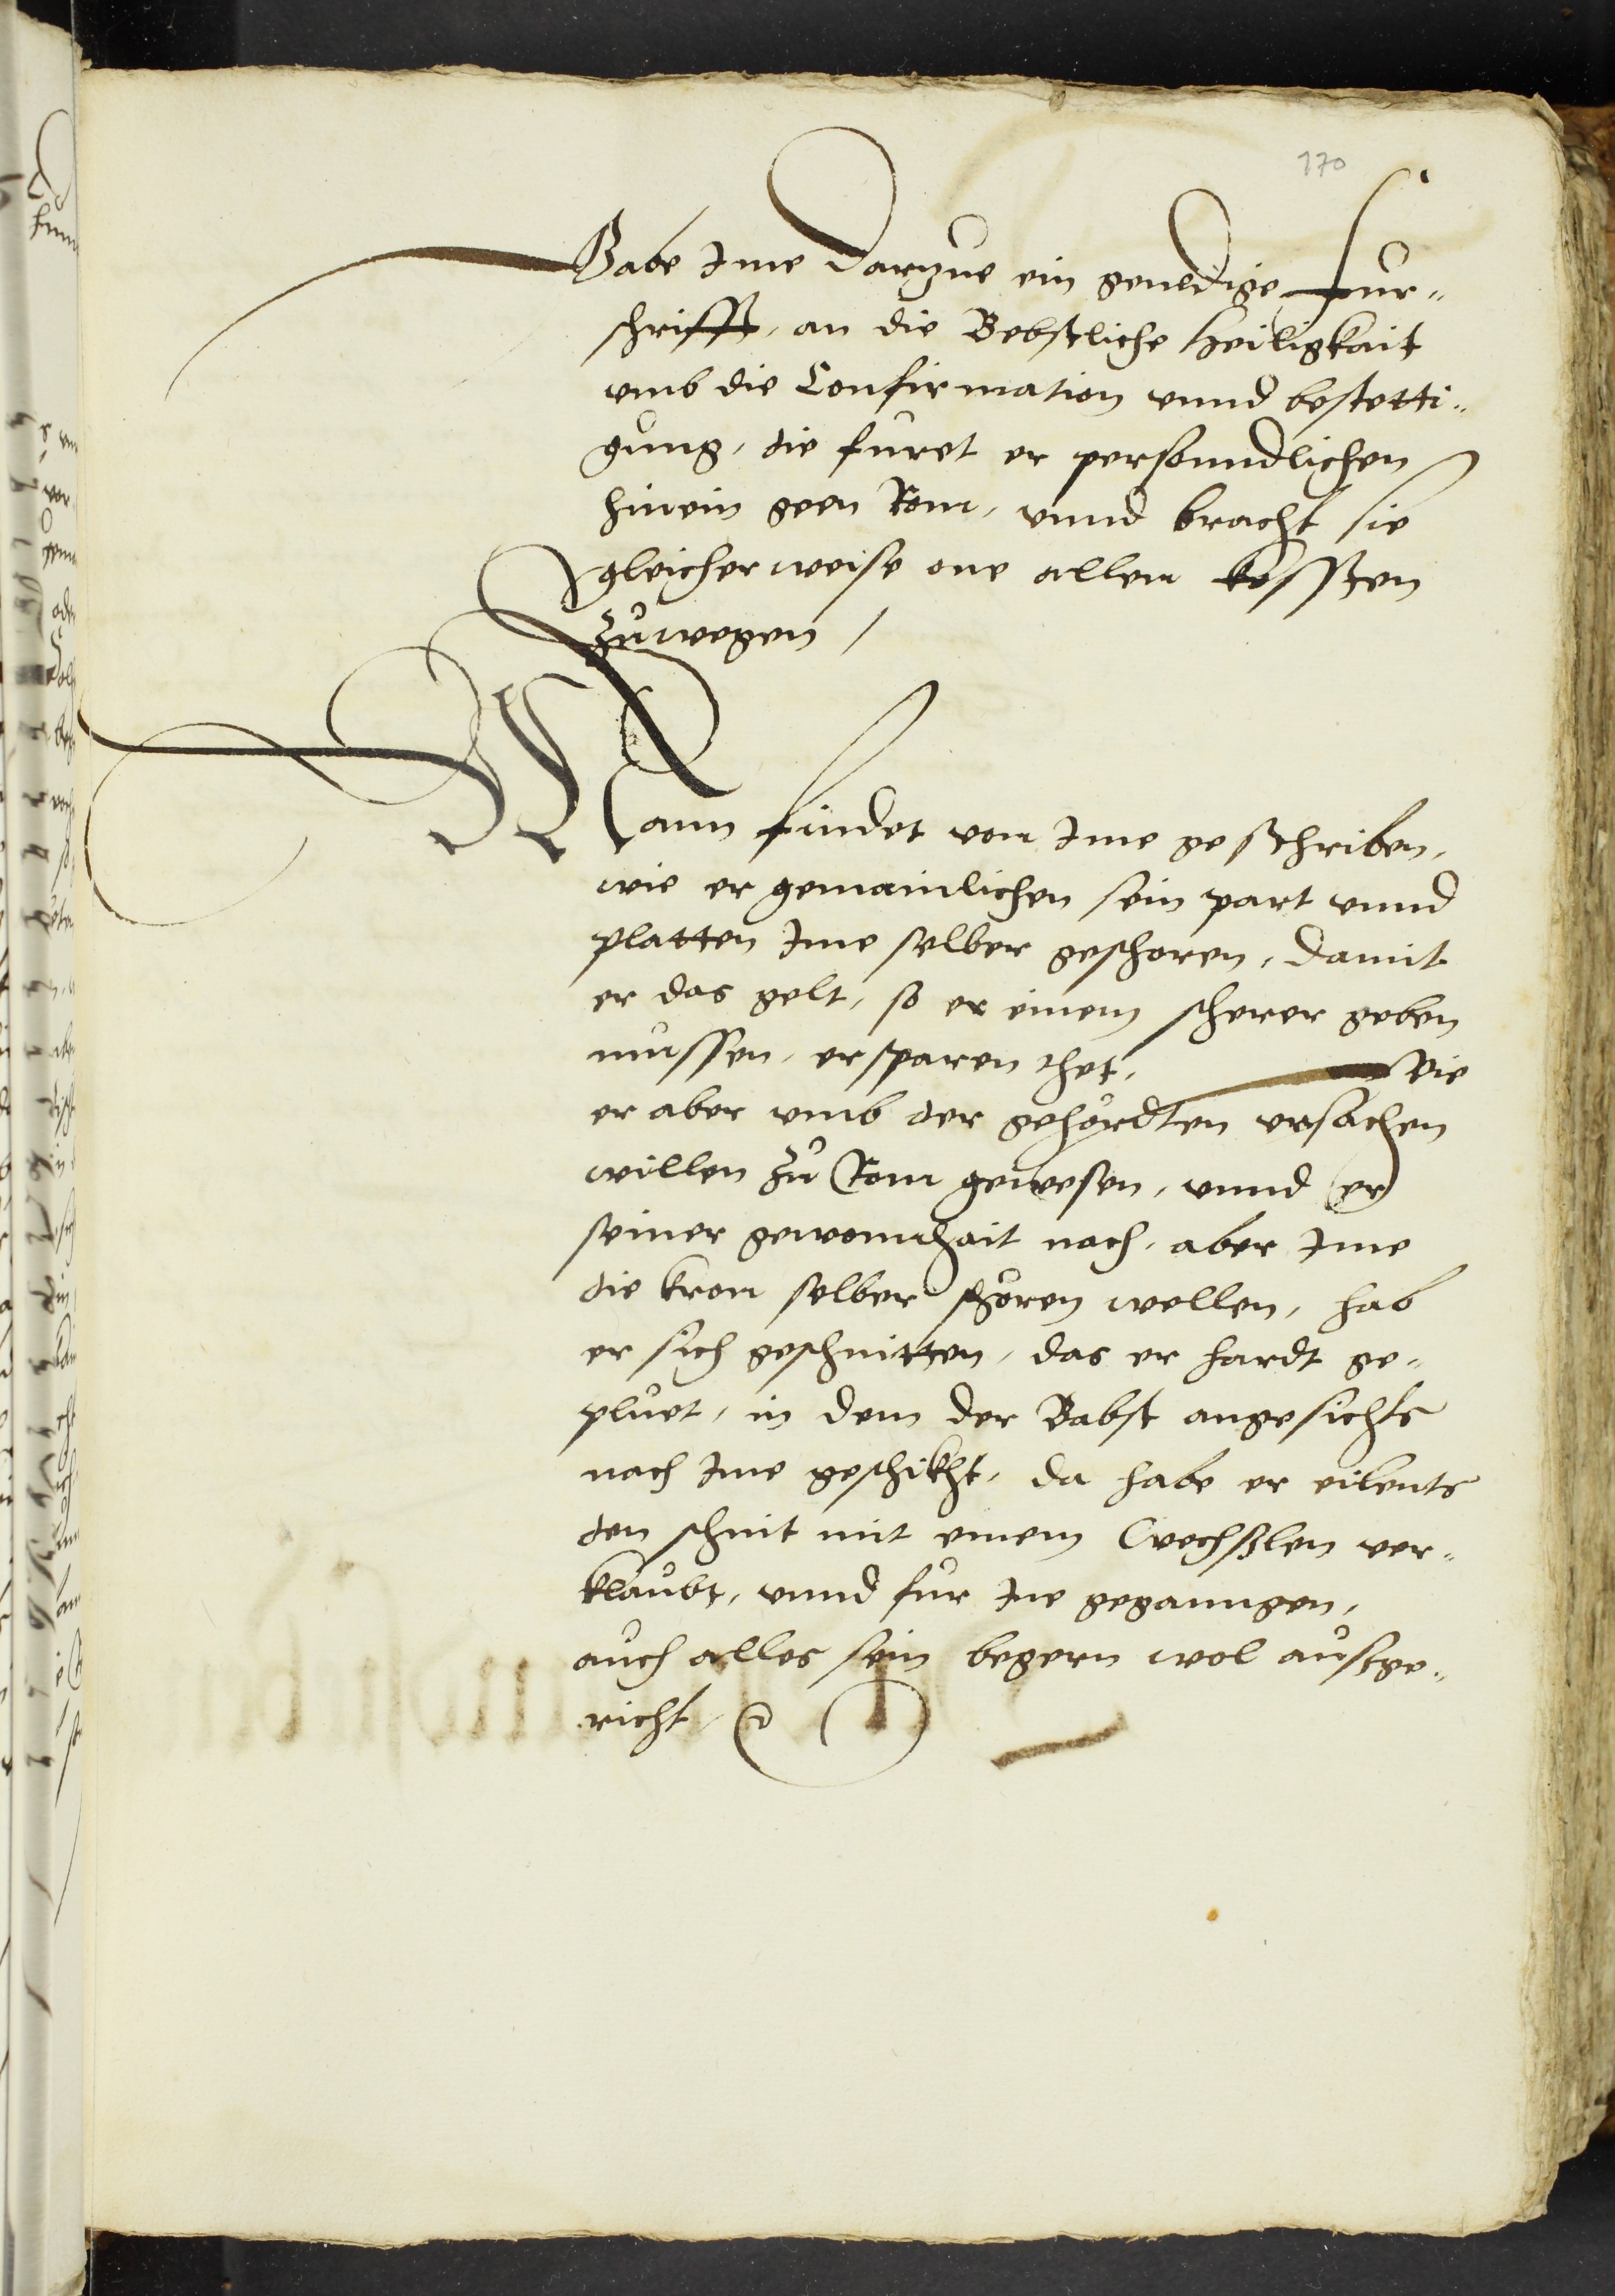 170
Gabe Ime Darzue ein genedige fur„
schrifft, an die Bebstliche Heiligkait
vmb die Confirmation vnnd bestetti„
gung, die furet er personndlichen
hinein geen Rom, vnnd bracht sie
gleicher weise one allem kossten
zuwegen /
Mann findet von Ime geschriben,
wie er gemainlichen sein part vnnd
platten Ime selber geschoren, damit
er das gelt, so er einem scherer geben
mussen, ersparen thet, Wie
er aber vmb der gehördten vrsachen
willen zu Rom gewesen, vnnd er
seiner gewonnhait nach, aber Ime
die kron selber schören wellen, hab
er sich geschnitten, das er hardt ge„
pluet, in dem der Babst angesichts
nach Ime geschikht, da habe er eilents
den schnit mit einem Wechsslen ver„
klaubt, vnnd fur Ine geganngen,
auch alles sein begern wol aussge„
richt,